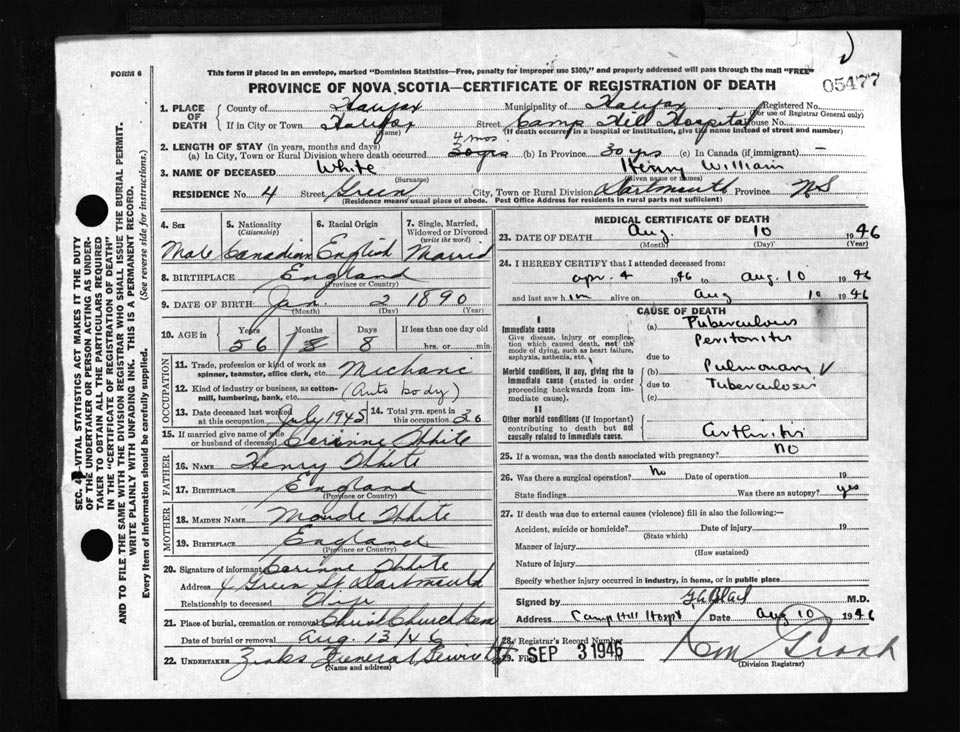 FORM 6
This form if placed in an envelope, marked "Dominion Statistics—Free, penalty for improper use $300," and properly addressed will pass through the mail "FREE"
05477
PROVINCE OF NOVA SCOTIA—CERTIFICATE OF REGISTRATION OF DEATH
1. PLACE OF DEATH
County of Halifax Municipality of Halifax Registered No. (For use of Registrar General only)
If in City or Town Halifax (Name) Street Camp Hill Hospital House No.
(If death occurred in a hospital or institution, give the name instead of street and number)
2. LENGTH OF STAY (in years, months and days)
(a) In City, Town or Rural Division where death occurred 30 yrs 4 mos. (b) In Province 30 yrs (c) In Canada (if immigrant) —
3. NAME OF DECEASED White (Surname) Henry William (Given name or names)
RESIDENCE No. 4 Street Green City, Town or Rural Division Dartmouth Province NS
(Residence means usual place of abode. Post Office Address for residents in rural parts not sufficient)
4. Sex Male
5. Nationality (Citizenship) Canadian
6. Racial Origin English
7. Single, Married, Widowed or Divorced (write the word) Married
8. BIRTHPLACE England
(Province or Country)
9. DATE OF BIRTH Jan. 2 1890
(Month) (Day) (Year)
10. AGE in Years Months Days If less than one day old
56 7 8 hrs. or min.
OCCUPATION
11. Trade, profession or kind of work as spinner, teamster, office clerk, etc. Michanic
12. Kind of industry or business, as cotton-mill, lumbering, bank, etc. (Auto body)
13. Date deceased last worked at this occupation July 1945 14. Total yrs. spent in this occupation 30
15. If married give name of wife or husband of deceased Corinne White
FATHER
16. NAME Henry White
17. BIRTHPLACE England
(Province or Country)
MOTHER
18. MAIDEN NAME Maude White
19. BIRTHPLACE England
(Province or Country)
20. Signature of informant Corinne White
Address 4 Green St Dartmouth
Relationship to deceased Wife
21. Place of burial, cremation or removal Christ Church Cem
Date of burial or removal Aug. 13/46
22. UNDERTAKER Zinks Funeral Service
(Name and address)
MEDICAL CERTIFICATE OF DEATH
23. DATE OF DEATH Aug. 10 1946
(Month) (Day) (Year)
24. I HEREBY CERTIFY that I attended deceased from:
apr. 4 1946 to aug. 10 1946
and last saw him alive on aug 10 1946
CAUSE OF DEATH
I
Immediate cause
Give disease, injury or complication which caused death, not the mode of dying, such as heart failure, asphyxia, asthenia, etc.
(a) Tuberculous Peritonitis
due to
Morbid conditions, if any, giving rise to immediate cause (stated in order proceeding backwards from immediate cause).
(b) Pulmonary Tuberculosis
due to
(c)
II
Other morbid conditions (if important) contributing to death but not causally related to immediate cause.
arthritis
25. If a woman, was the death associated with pregnancy? NO
26. Was there a surgical operation? No Date of operation 19
State findings Was there an autopsy? yes
27. If death was due to external causes (violence) fill in also the following:—
Accident, suicide or homicide? Date of injury 19
(State which)
Manner of injury
(How sustained)
Nature of injury
Specify whether injury occurred in industry, in home, or in public place
Signed by M.D.
Address Camp Hill Hospt Date aug 10 1946
28. Registrar's Record Number
29. Filed SEP 3 1946
(Division Registrar)
SEC. 4—VITAL STATISTICS ACT MAKES IT THE DUTY
OF THE UNDERTAKER OR PERSON ACTING AS UNDER-
TAKER TO OBTAIN ALL THE PARTICULARS REQUIRED
IN THE "CERTIFICATE OF REGISTRATION OF DEATH"
AND TO FILE THE SAME WITH THE DIVISION REGISTRAR WHO SHALL ISSUE THE BURIAL PERMIT.
WRITE PLAINLY WITH UNFADING INK. THIS IS A PERMANENT RECORD.
Every item of information should be carefully supplied. (See reverse side for instructions.)